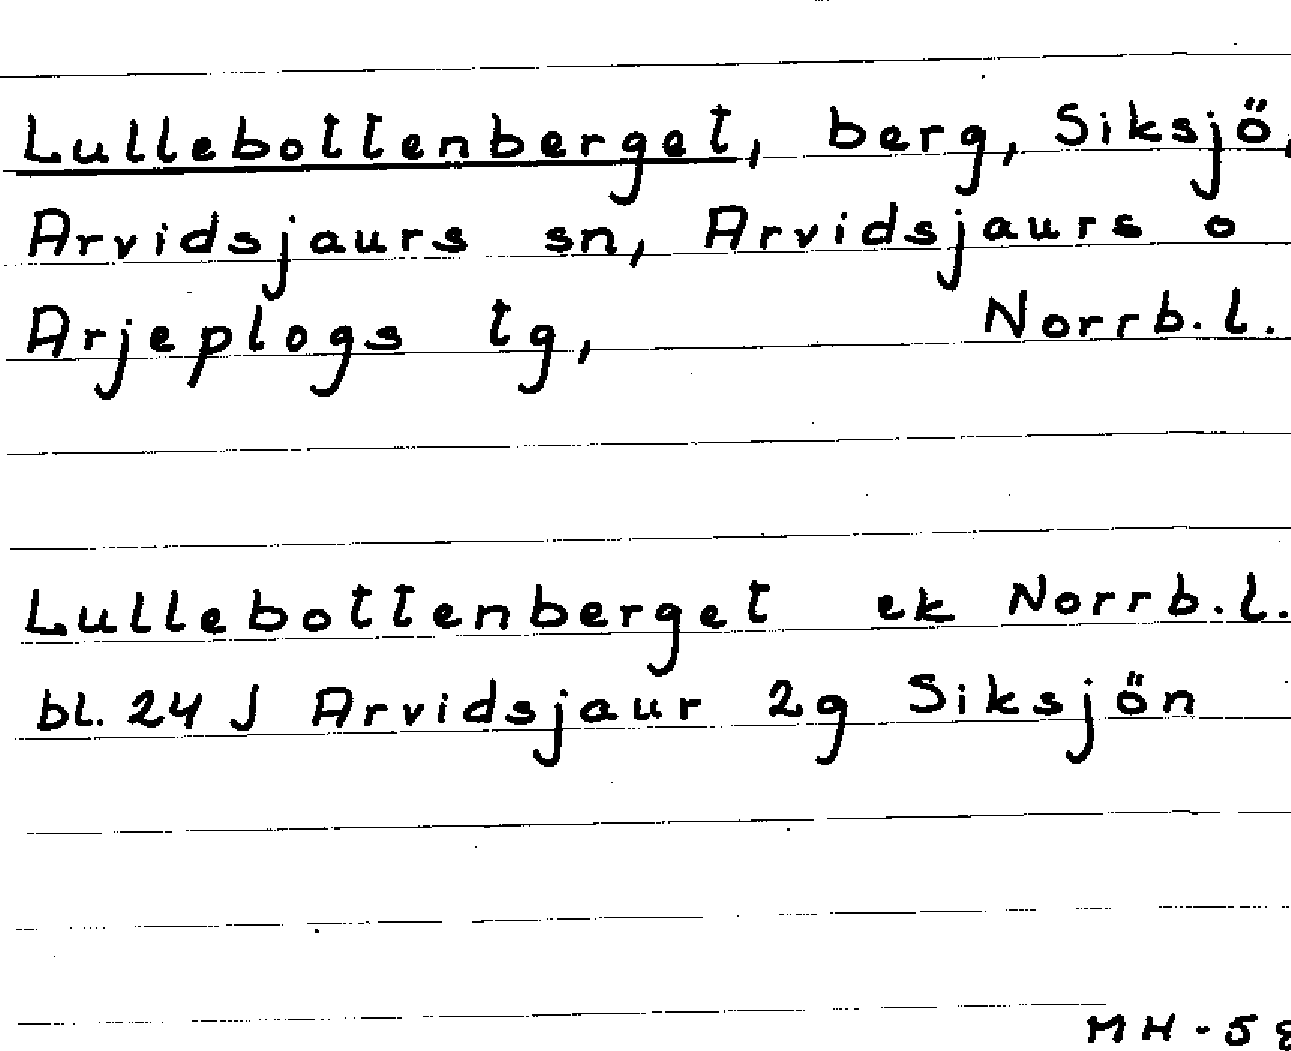 Lullebottenberget, berg, Siksjö,
Arvidsjaurs sn, Arvidsjaurs o
Arjeplogs tg, Norrb.l.
Lullebottenberget ek Norrb.l.
bl. 24 J Arvidsjaur 2g Siksjön